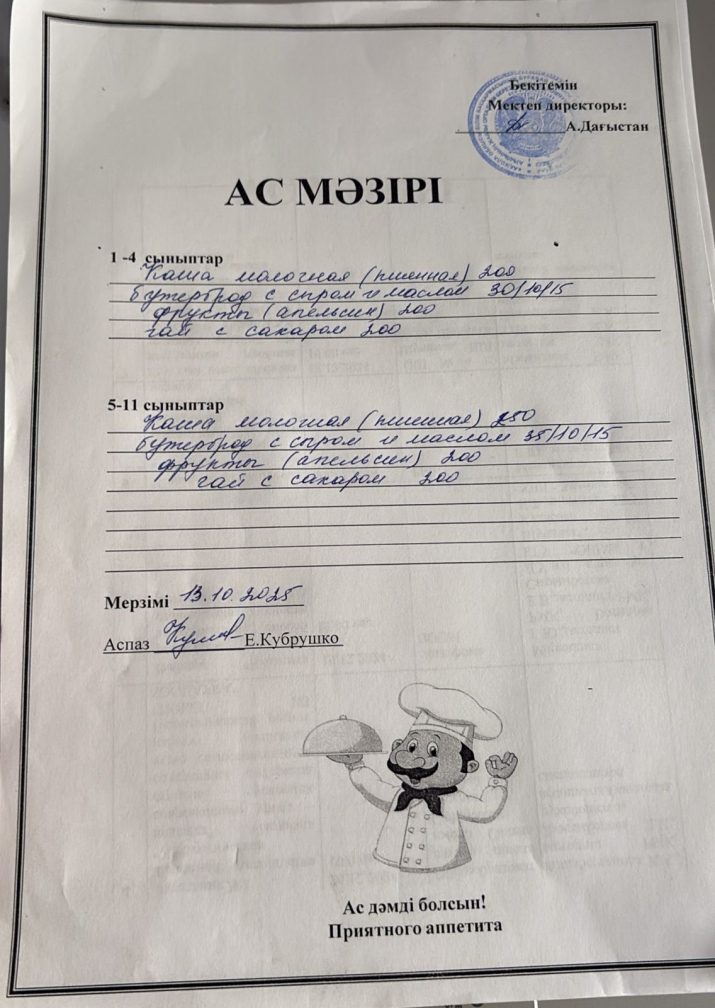 Бекітемін
Мектеп директоры:
А.Дағыстан
АС МӘЗІРІ
1 -4 сыныптар
Каша молочная (пшенная) 200
бутерброд с сыром и маслом 30/10/15
фрукты (апельсин) 200
чай с сахаром 200
5-11 сыныптар
Каша молочная (пшенная) 250
бутерброд с сыром и маслом 35/10/15
фрукты (апельсин) 200
чай с сахаром 200
Мерзімі 13.10.2025
Аспаз Е.Кубрушко
Ас дәмді болсын!
Приятного аппетита